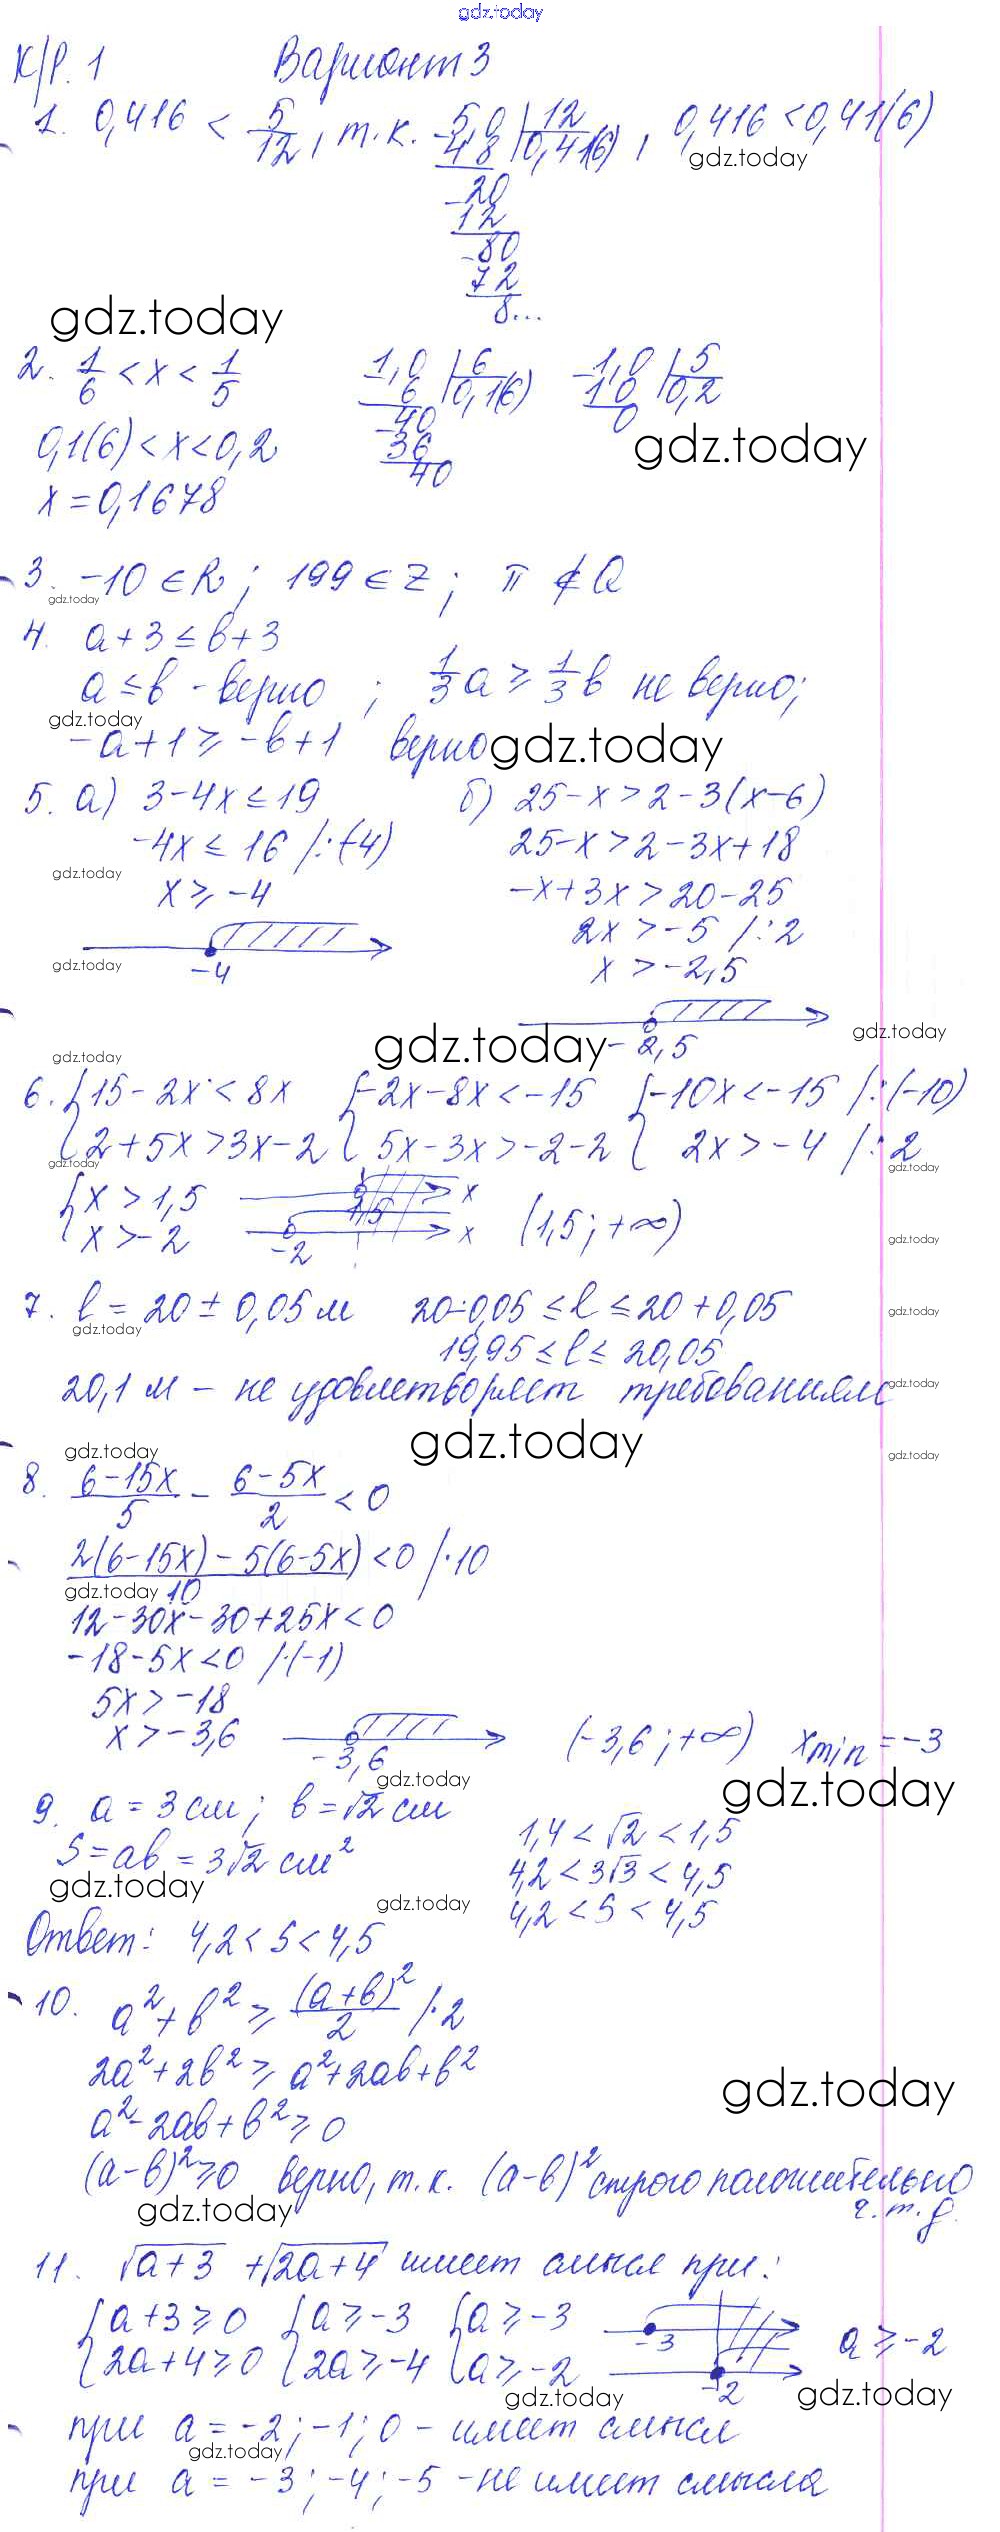 gdz.today
К/Р. 1 Вариант 3
1. 0,416 < 5/12, т.к. 5,0 | 12 0,41(6), 0,416 < 0,41(6)
48
gdz.today
20
12
80
72
8...
gdz.today
2. 1/6 < x < 1/5 1,0 | 6 0,1(6) 1,0 | 5 0,2
6 10
40 0
0,1(6) < x < 0,2 36
gdz.today
40
x = 0,1678
3. -10 ∈ R; 199 ∈ Z; π ∉ Q
gdz.today
4. a + 3 ≤ b + 3
a ≤ b - верно; 1/3 a ≥ 1/3 b не верно;
gdz.today
-a + 1 ≥ -b + 1 верно
gdz.today
5. а) 3 - 4x ≤ 19 б) 25 - x > 2 - 3(x - 6)
-4x ≤ 16 /:(-4) 25 - x > 2 - 3x + 18
gdz.today
x ≥ -4 -x + 3x > 20 - 25
2x > -5 /:2
gdz.today
-4 x > -2,5
gdz.today
gdz.today
-2,5
gdz.today
6. { 15 - 2x < 8x { -2x - 8x < -15 { -10x < -15 /:(-10)
{ 2 + 5x > 3x - 2 { 5x - 3x > -2 - 2 { 2x > -4 /:2
gdz.today
gdz.today
{ x > 1,5 1,5 x
{ x > -2 -2 x (1,5; +∞)
gdz.today
7. l = 20 ± 0,05 м 20 - 0,05 ≤ l ≤ 20 + 0,05
gdz.today
gdz.today
19,95 ≤ l ≤ 20,05
20,1 м - не удовлетворяет требованиям
gdz.today
gdz.today
gdz.today
gdz.today
8. (6 - 15x)/5 - (6 - 5x)/2 < 0
(2(6 - 15x) - 5(6 - 5x))/10 < 0 /·10
gdz.today
12 - 30x - 30 + 25x < 0
-18 - 5x < 0 /·(-1)
5x > -18
x > -3,6 -3,6 (-3,6; +∞) x min = -3
gdz.today
gdz.today
9. a = 3 см; b = √2 см 1,4 < √2 < 1,5
S = ab = 3√2 см² 4,2 < 3√3 < 4,5
gdz.today
gdz.today
4,2 < S < 4,5
Ответ: 4,2 < S < 4,5
10. a² + b² ≥ (a + b)²/2 /·2
2a² + 2b² ≥ a² + 2ab + b²
gdz.today
a² - 2ab + b² ≥ 0
(a - b)² ≥ 0 верно, т.к. (a - b)² строго положительно
gdz.today
ч.т.д.
11. √(a + 3) + √(2a + 4) имеет смысл при:
{ a + 3 ≥ 0 { a ≥ -3 { a ≥ -3 -3
{ 2a + 4 ≥ 0 { 2a ≥ -4 { a ≥ -2 -2 a ≥ -2
gdz.today
gdz.today
при a = -2; -1; 0 - имеет смысл
gdz.today
при a = -3; -4; -5 - не имеет смысла